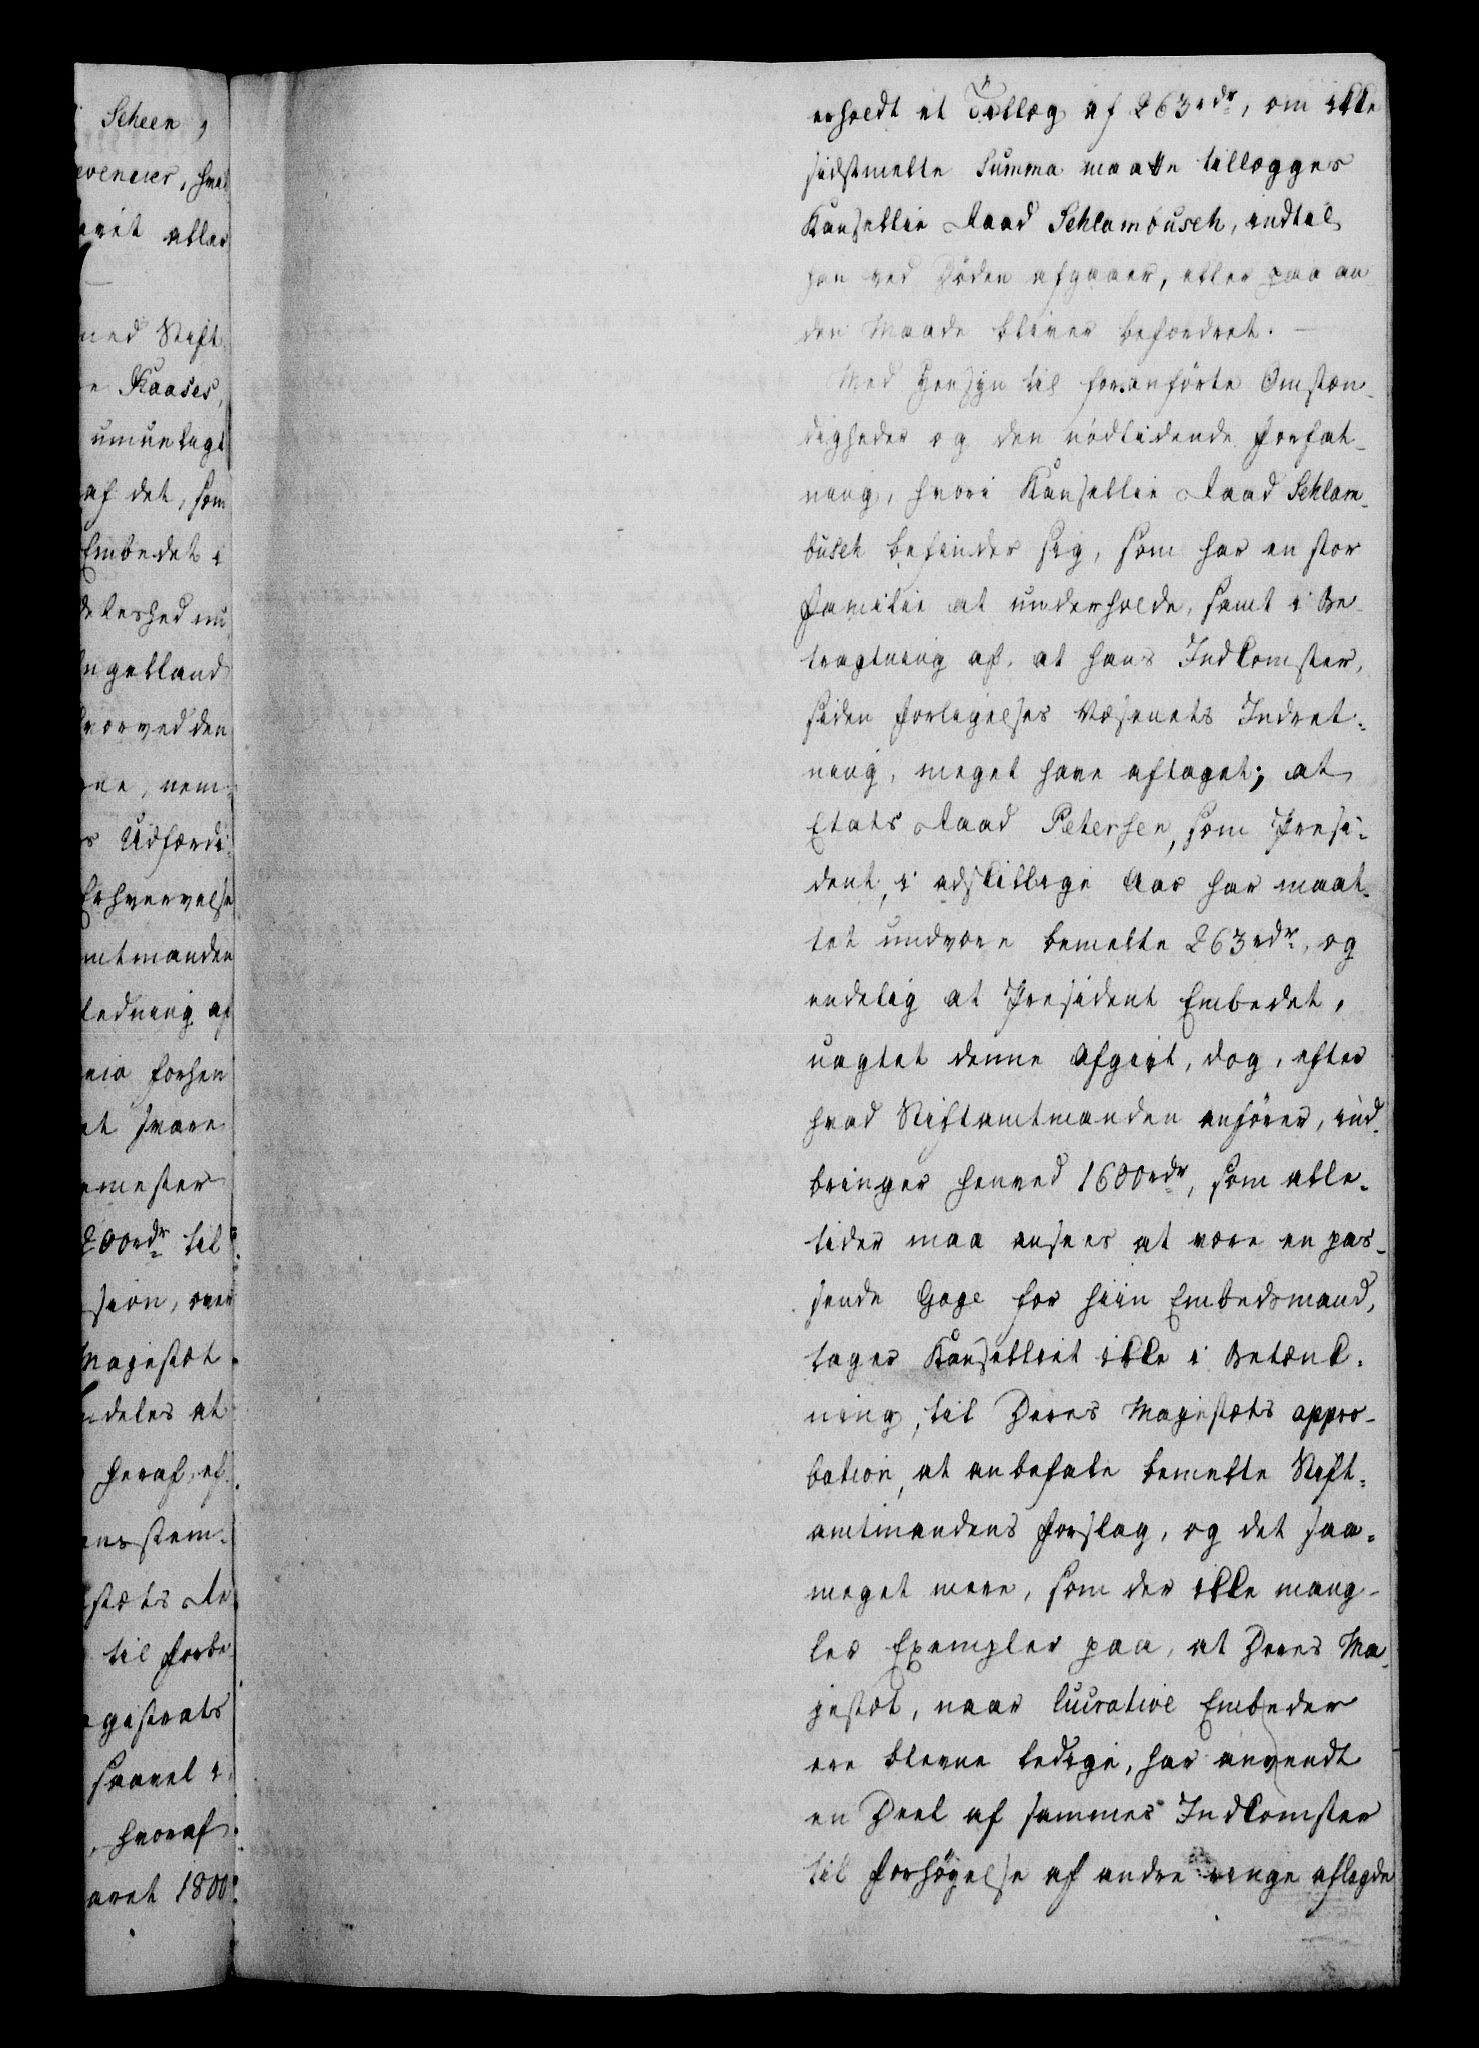 Scheen,
evenuer, hvad
avit aller
med Stift
e Kaases,
umuelagt
af det, som
Embedet i
deleshed nu
ngelland
hvorved den
ne, nem-
s Udfærdi-
Erhvervelse
mtmanden
ledning af
nio forhen
et svare
emester
200rdr til
sion, over
Majestæt
ndeles at
heraf, ef-
ens stem-
stæts Re
til Forbe
agistrats
saavel i
hvoraf
aaret 1800
erholdt et Tillæg af 263rdr, om ikke
sidstmelte Summa maatte tillægges
Kanselie Raad Schlambusch, indtil
han ved Döden afgaaer, eller paa an-
den Maade bliver befordret. —
Med Hensyn til foranförte Omstæn-
digheder og den nödlidende Forfat-
ning, hvori Kansellie Raad Schlam-
busch befinder sig, som har en stor
Familie at underholde, samt i Be-
tragtning af, at hans Indkomster,
siden Forligelses Væsenets Indret-
ning, meget have aftaget; at
Etats Raad Petersen, som Presi-
dent, i adskillige Aar har maat-
tet undvære bemelte 263rdr, og
endelig at President Embedet,
uagtet denne Afgivt, dog, efter
hvad Stiftamtmanden anförer, ind-
bringer henved 1600rdr, som alle-
tider maa ansees at være en pas-
sende Gage for hiin Embedsmand,
tager Kanselliet ikke i Betænk-
ning, til Deres Majestæts appro-
bation, at anbefale bemelte Stift-
amtmandens Forslag, og det saa-
meget mere, som der ikke mang-
ler Exempler paa, at Deres Ma-
jestæt, naar lucrative Embeder
ere blevne ledige, har anvendt
en Deel af sammes Indkomster
til Forhöyelse af andre ringe aflagde